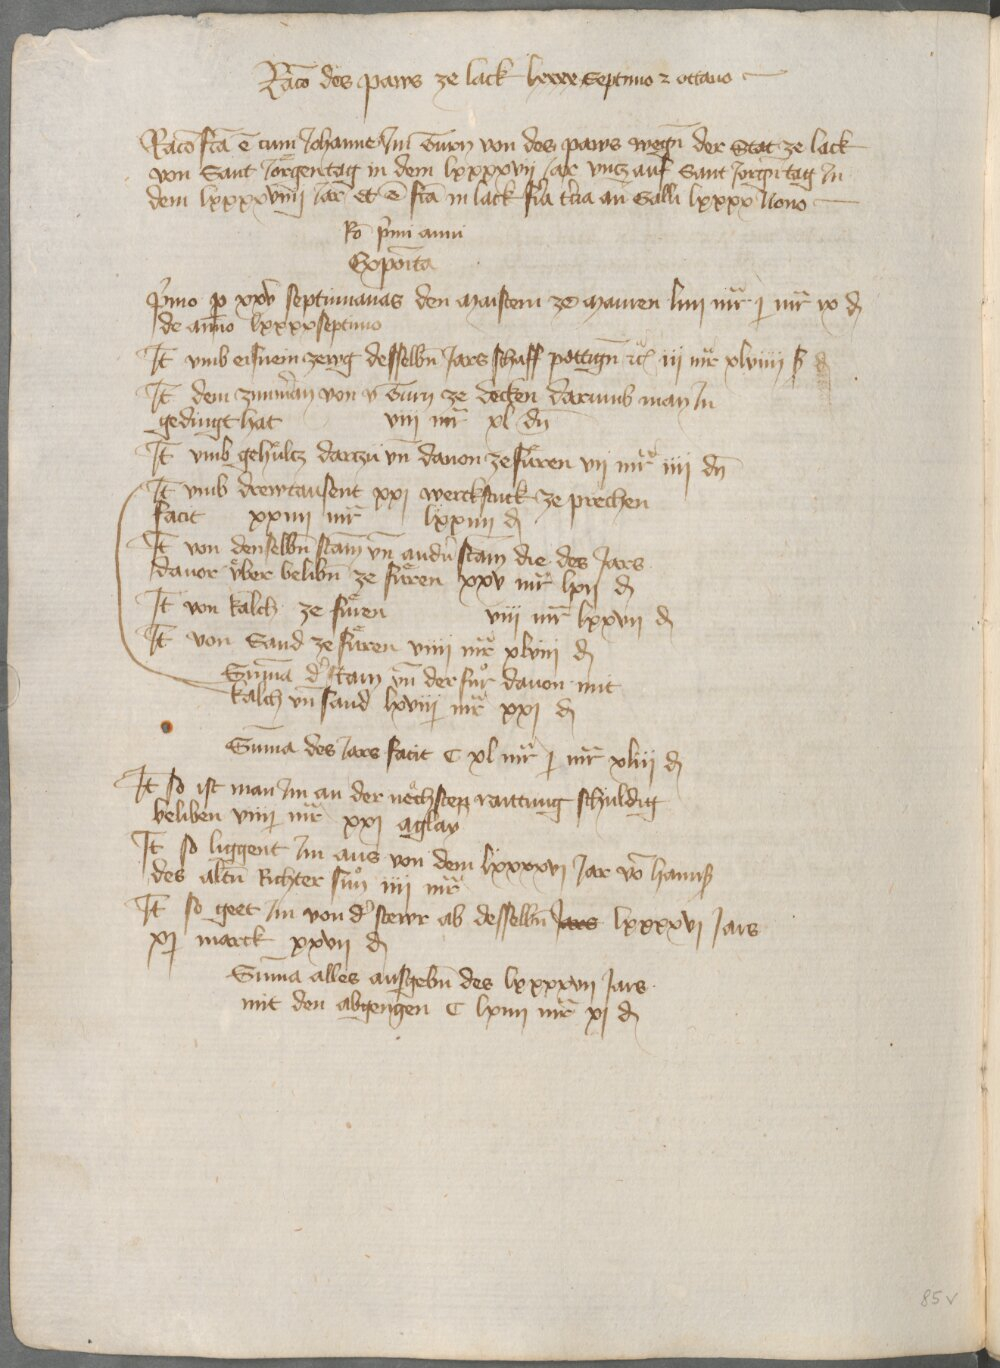 Raco des paws ze lack lxxxx Septimo et octauo
Raco fca e cum Johanne Im Turn von des paws wegn der Stat ze lack
von Sant Jörgentag in dem lxxxxvii Jar vncz auf Sant Jorgntag In
dem lxxxxviiii Jar Et e fca in lack fia tcia an Galli lxxxx Nono
Ro pmi anni
Exposita
pmo p xxv septimanas den Maistern ze Mauren liiii mr j mr xx d
de anno lxxxxseptimo
It vmb eisnein zewg desselbn Jars schaff pottign etc iii mr xlviiii d
It dem zimman von v Turn ze decken darumb man In
gedingt hat viii mr xl dn
It vmb gehültz dartzu vn dauon ze füren vii mr iiii dn
It vmb drewtausent xxj werckstuck ze prechen
facit xxiiii mr lxxiiii d
It von denselbn stain vn andn stain die des Jars
dauor vber belibn ze füren xxv mr lxii d
It von kalch ze füren viii mr lxxvii d
It von Sand ze füren viiii mr xlviii d
Summa d stain vn der fur dauon mit
kalch vn sand lxviij mr xxj d
Summa des Jars facit C xl mr j mr xliii d
It so ist man Im an der nechsten raittung schuldig
beliben viiij mr xxj aglay
It so liggent Im aus von dem lxxxxvj Jar vo hanns
des altn Richter sun iiii mr
It so geet Im von d stewr ab desselbn Jars lxxxxvj Jars
xj marck xxvii d
Summa alles ausgebn des lxxxxvii Jars
mit den abgengen C lxiiii mr xj d
85v